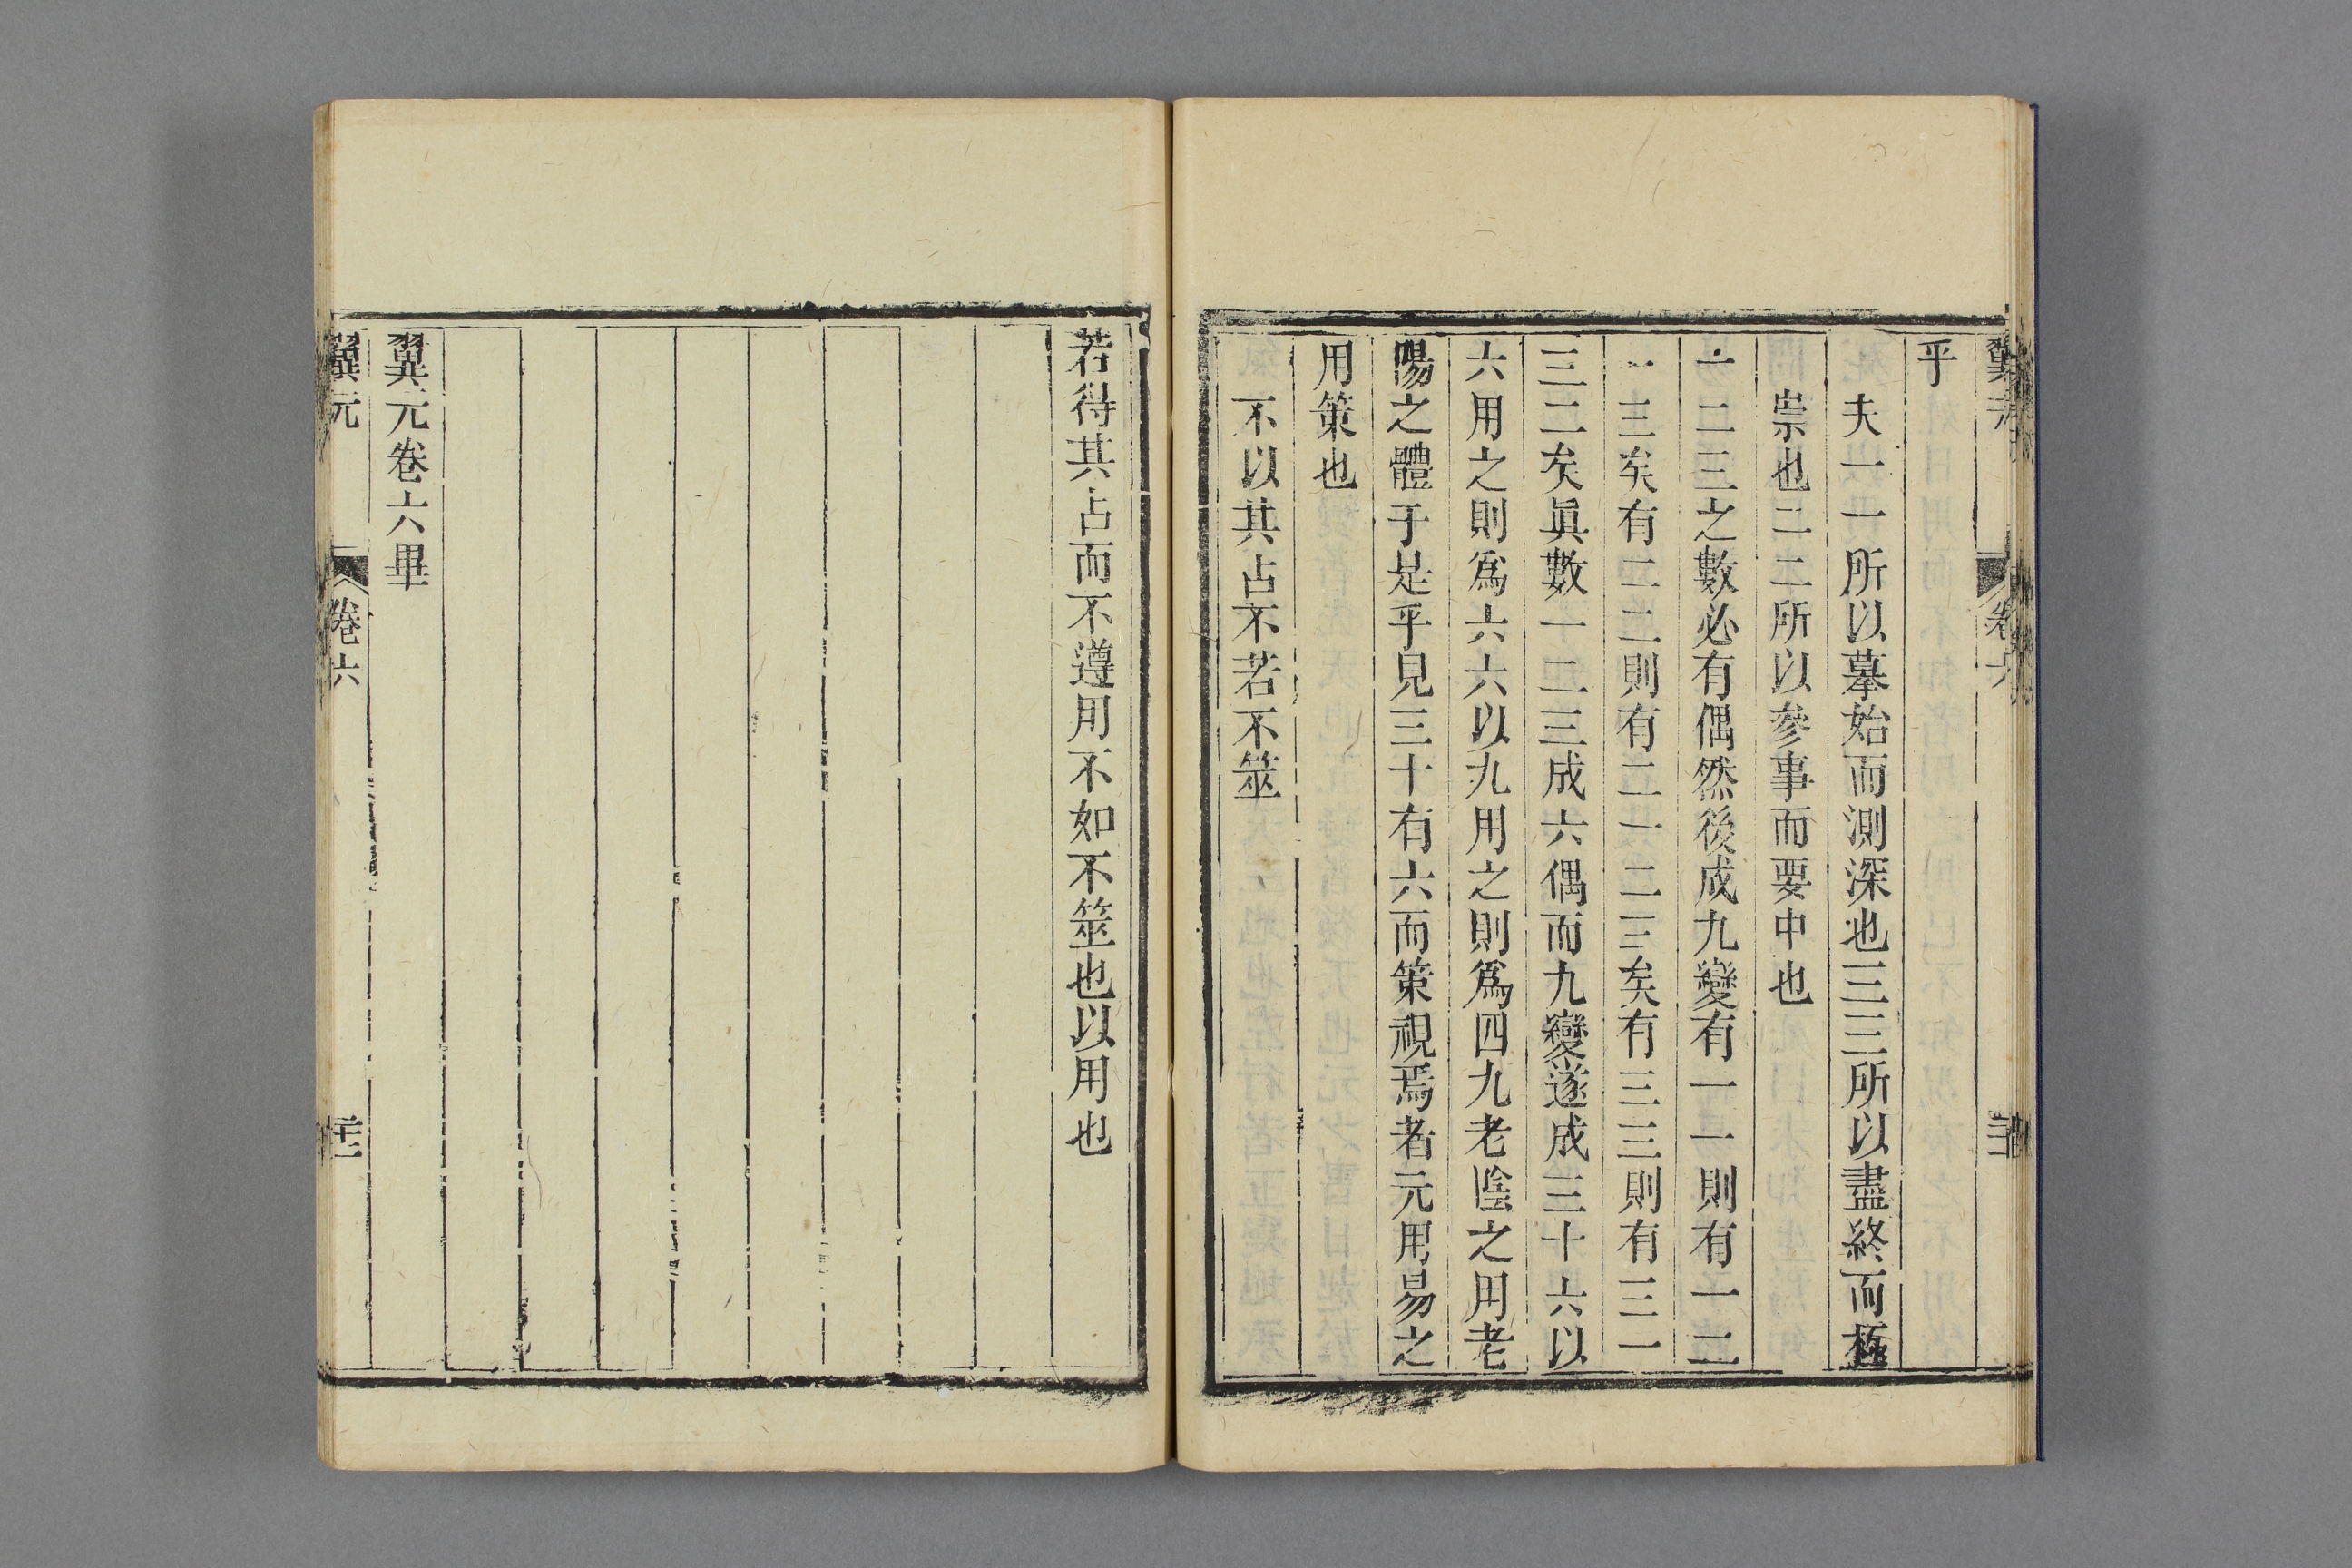 乎
夫一一所以摹始而測深也三三所以盡終而極
崇也二二所以參事而要中也
一二三之數必有偶然後成九變有一一則有一二
一三矣有二二則有二一二三矣有三三則有三一
三二矣眞數一二三成六偶而九變遂成三十六以
六用之則爲六六以九用之則爲四九老陰之用老
陽之體于是乎見三十有六而策視焉者元用易之
用策也
不以其占不若不筮
若待其占而不遵用不如不筮也以用也
翼元卷六畢
翼元 卷六